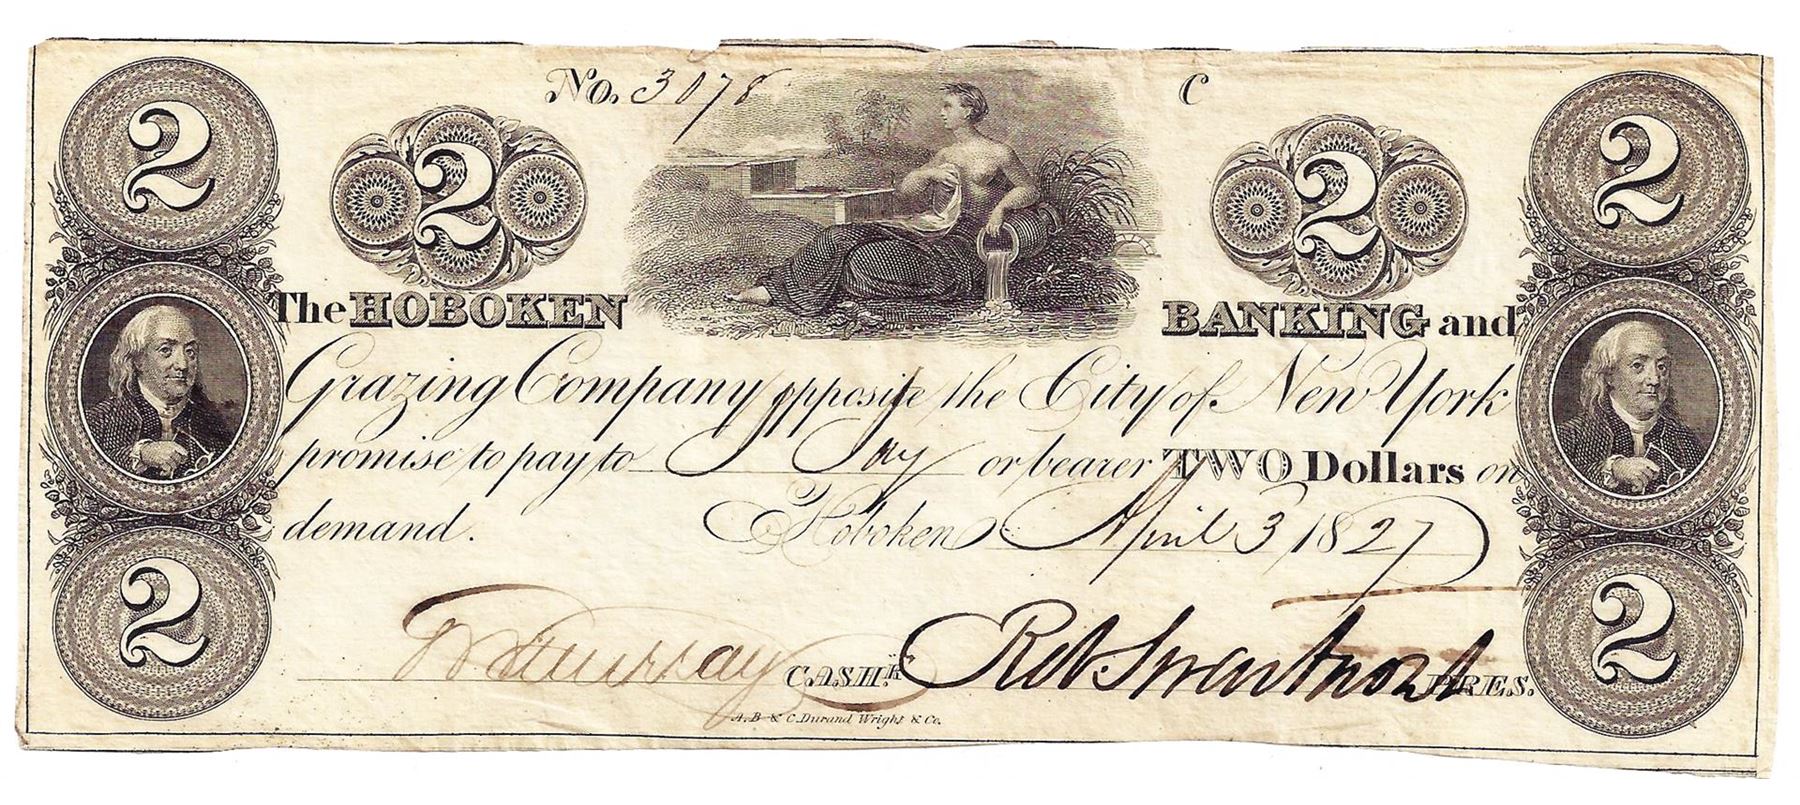 2 No. 3078 C 2
2 2
The HOBOKEN BANKING and
Grazing Company opposite the City of New York
promise to pay to J Jay or bearer TWO Dollars on
demand. Hoboken April 3 1827
Murray CASHR. Rob. Swartwout PRES.
2 2
A.B & C. Durand Wright & Co.